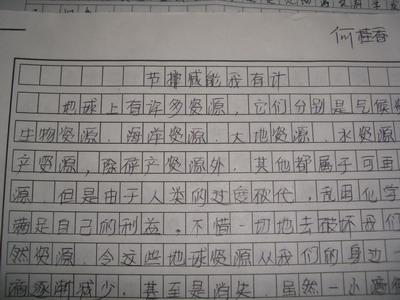 何桂香
节撑减能我有计
地球上有许多资源，它们分别是气候资
生物资源、海洋资源、大地资源、水资源
产资源，除矿产资源外，其他都属于可再
源，但是由于人类的过度砍伐，乱用化学
满足自己的利益，不惜一切地去破坏我们
然资源，令这些地球资源从我们的身边一
两逐渐减少，甚至是消失，虽然一小滴